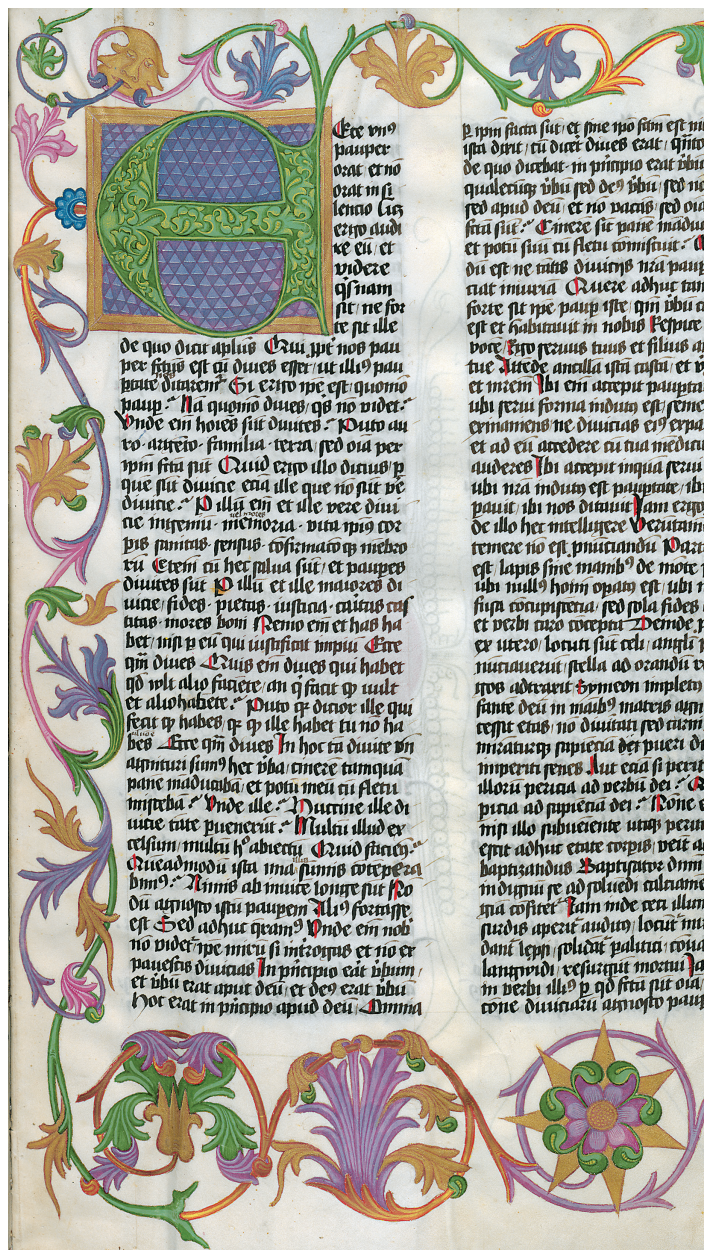 Ecce vnꝰ
pauper
orat et nō
orat in si
lentio Licꝫ
ergo audi
re eū et
videre
qͥsnam
sit ne for
te sit ille
de quo dicit aplūs Qui ꝓpt nos pau
per fctūs est cū diues esset ut illiꝰ pau
ꝑtate ditaremͬ Si ergo ipē est quomō
paupꝰ Nā quomō diues qͥs nō videt
Vnde em̄ hoīes sūt diuites Puto au
ro argēto familia terra sed oīa per
ipm̄ fcta sūt Quid ergo illo diciuꝰ ꝑ
que sūt diuicie eciā ille que nō sūt ve
diuicie Ꝑ illū em̄ et ille vere diui
cie ingeniū memoria vita ipiꝰ cor
pis sanitas sensus cōformatō qꝫ mēbro
rū Etem̄ cū hec salua sūt et paupes
diuites sūt Ꝑ illū et ille maiores di
uicie fides pietas iusticia caritas cas
titas mores boni Nemo em̄ et has ha
bet nisi ꝑ eū qui iustificat impiū Ecce
qm̄ diues Quis em̄ diues qui habet
qd̄ vult alio faciēte an qͥ facit qͦ vult
et alio habēte Puto qͥ dicior ille qui
fecit qͦ habes qꝛ qͦ ille habet tu nō ha
bes Ecce qm̄ diues In hoc tā diuite vn̄
agnituri sumꝰ hec v̄ba cinere tamquā
pane māducabā et potū meū cū fletu
misceba Vnde ille Huccine ille di
uicie tāte ꝑuenerūt Multū illud ex
celsum multū hͦ abiectū Quid faciemꝰ
Queadmodū ista ima sūmis cōtepera
bimꝰ Nimis ab inuice longe sūt No
dū agnosco istū paupem Illiꝰ fortasse
est Sed adhuc qͣramꝰ Vnde em̄ nob̄
nō videt ipe nicū si introigas et nō ex
pauescis diuicias In pͥncipio erat v̄bum
et v̄bū erat aput deū et deꝰ erat v̄bū
Hoc erat in pͥncipio apud deū Omnia
ꝑ ipm̄ facta sūt et sine ipō fcm̄ est
ista dixit cū dicet diues erat
de quo dicebat in pͥncipio erat v̄bū
qualecūqꝫ v̄bū sed deꝰ v̄bū sed
sed apud deū et nō vacās sed oīa
fcta sūt Cinere sic pane mādu
et potū suū cū fletu cōmiscuit
dū est ne tātis diuicijs nr̄a paup
ciat iniuria Quere adhuc tam
forte sit ipe paupꝰ iste qm̄ v̄bū
est et habitauit in nobis Respice
voce Ego seruus tuus et filius
tue Attende ancilla istā castā et
et mr̄em Ibi em̄ accepit paupta
ubi serui forma indutꝰ est seme
exinaniens ne diuicias eiꝰ expa
et ad eū accedere cū tua mēdici
auderes Ibi accepit inquā serui
ubi nr̄a indutꝰ est paupertate ibi
pauit ibi nos ditauit Jam ergo
de illo hec intellugere Verutam
temere nō est ꝓnūciandū Part
est lapis sine mambꝰ de mōte
ubi nullꝰ homi opatꝰ est ubi
fusa cōcupiscētia sed sola fides
et verbi caro cōcepta Deinde
ex utero locuti sūt celi angli
nūciauerūt stella ad orandū
gos adtraxit Symeon impletꝰ
fante deū in maibꝰ matris agn
cessit etas nō diuitati sed carni
miratiqꝫ sapiēcia dei pueri
imperiti senes Aut eciā si perit
illorū pericia ad verbū dei
picia ad sapiēcia dei Nōne
nisi illo subueiente utiqꝫ peru
escit adhuc etate corpis veit
baptizandus Baptisator dnm̄
indignū se ad soluedi calciame
gia cōfitet Jam inde ceci illum
surdis aperit audituꝰ locūt mu
dant lepsi solidāt palitici
langwidi resurgūt mortui
in verbi illiꝰ ꝑ qd̄ fcta sūt oīa
cione diuiciarū agnosco paup